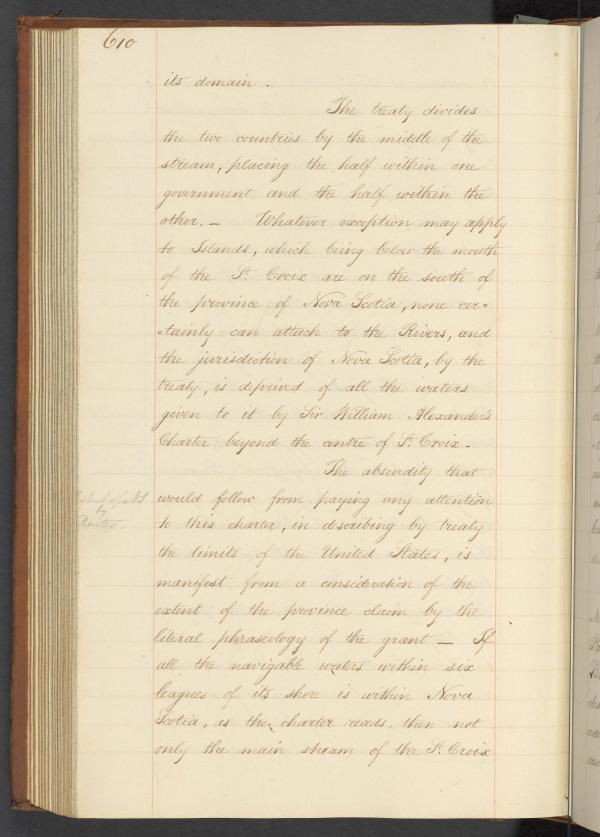 610
its domain.
The treaty divides
the two countries by the middle of the
stream, placing the half within one
government and the half within the
other. — Whatever exception may apply
to Islands, which being below the mouth
of the St. Croix are on the south of
the province of Nova Scotia, none cer-
-tainly can attach to the Rivers, and
the jurisdiction of Nova Scotia, by the
treaty, is deprived of all the waters
given to it by Sir William Alexander's
Charter beyond the centre of St. Croix.
The absurdity that
Extent of NS
by
Charter.
would follow from paying any attention
to this charter, in describing by treaty
the limits of the United States, is
manifest from a consideration of the
extent of the province claim by the
literal phraseology of the grant — If
all the navigable waters within six
leagues of its shore is within Nova
Scotia, as the charter reads, then not
only the main stream of the St. Croix